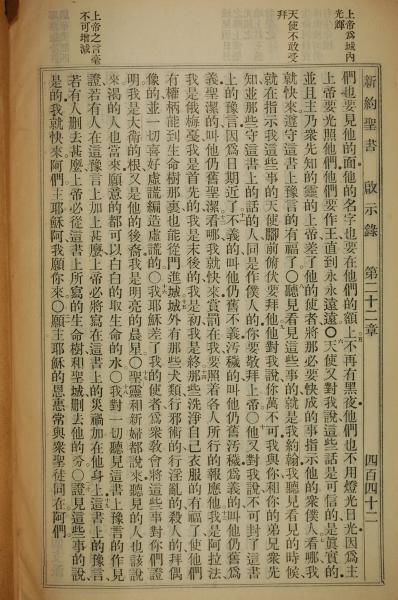 上帝爲城內
光輝
天使不敢受
拜
上帝之言毫
不可增減
新約聖書 啟示錄 第二十二章 四百四十二
們也要見他的面他的名字也要在他們的額上不再有黑夜他們也不用燈光日光因爲主
上帝要光照他們他們要作王直到永永遠遠〇天使又對我說這些話是可信的是眞實的
並且主乃衆先知的靈的上帝差了他的使者將那必要快成的事指示他的衆僕人看哪我
就快來遵守這書上豫言的有福了〇聽見看見這些事的就是我約翰我聽見看見的時候
就在指示我這些事的天使腳前俯伏要拜他他對我說你萬不可我與你和你的弟兄衆先
知並那些守這書上的話的人同是作僕人的你要敬拜上帝〇他又對我說不可封了這書
上的豫言因爲日期近了不義的叫他仍舊不義汚穢的叫他仍舊汚穢爲義的叫他仍舊爲
義聖潔的叫他仍舊聖潔看哪我就快來賞罰在我要照着各人所行的報應他我是阿拉法
我是俄梅戛我是首先的我是末後的我是初我是終那些洗淨自己衣服的有福了使他們
有權柄能到生命樹那裏也能從門進城城外有那些犬類行邪術的行淫亂的殺人的拜偶
像的並一切喜好虛謊編造虛謊的〇我耶穌差了我的使者爲衆教會將這些事對你們證
明我是大衞的根又是他的後裔我是明亮的晨星〇聖靈和新婦都說來聽見的人也該說
來渴的人也當來願意的都可以白白的取生命的水〇我對一切聽見這書上豫言的作見
證若有人在這豫言上加上甚麼上帝必將寫在這書上的災禍加在他身上這書上的豫言
若有人刪去甚麼上帝必從這書上所寫的生命樹和聖城刪去他的分〇證見這些事的說
是的我就快來阿們主耶穌阿我願你來〇願主耶穌的恩惠常與衆聖徒同在阿們